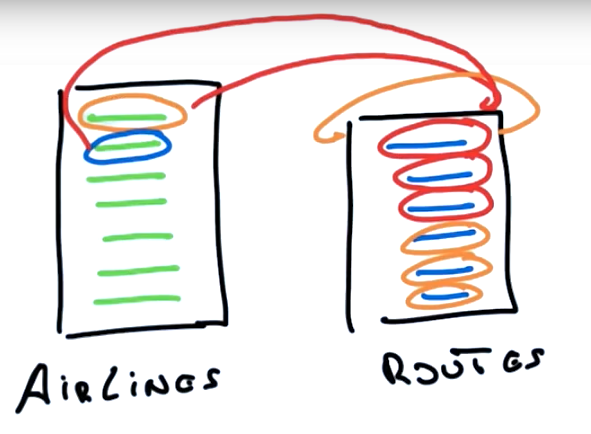 AIRLINES
ROUTES